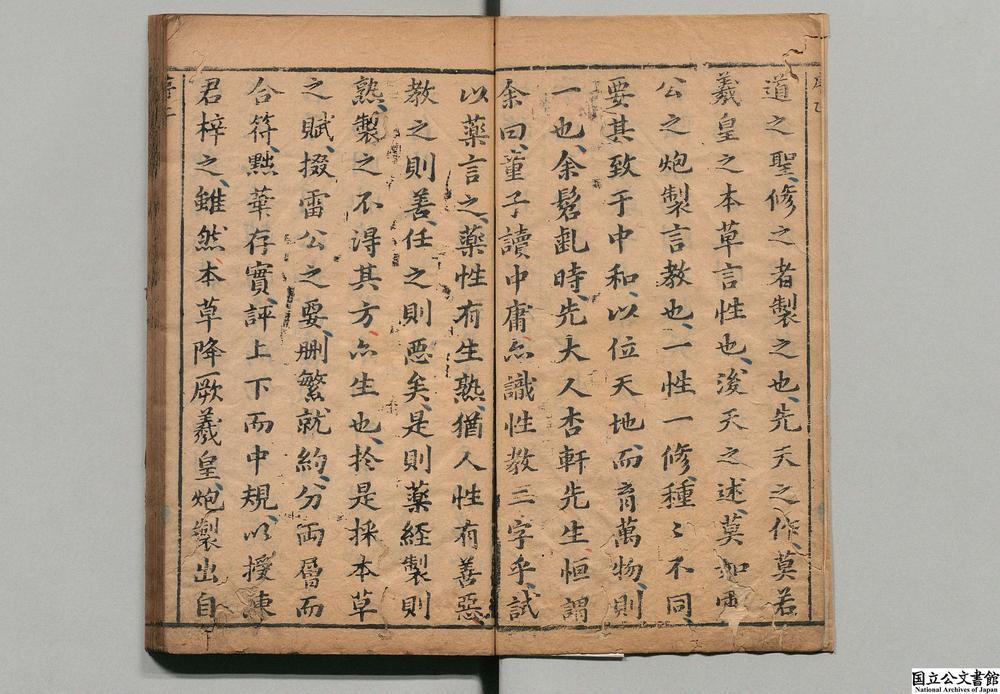 道之聖、修之者製之也、先天之作、莫若
羲皇之本草言性也、後天之述、莫如雷
公之炮製言教也、一性一修、種〻不同、
要其致于中和、以位天地、而育萬物、則
一也、余髫齓時、先大人杏軒先生恒謂
余曰、童子讀中庸、亦識性教二字乎、試
以藥言之、藥性有生熟、猶人性有善惡、
教之則善、任之則惡矣、是則藥経製則
熟、製之不淂其方、亦生也、扵是採本草
之賦、掇雷公之要、删繁就約、分両層而
合符、㸃華存實、評上下而中規、以授
君梓之、雖然本草降厥羲皇、炮製出自
国立公文書館
National Archives of Japan